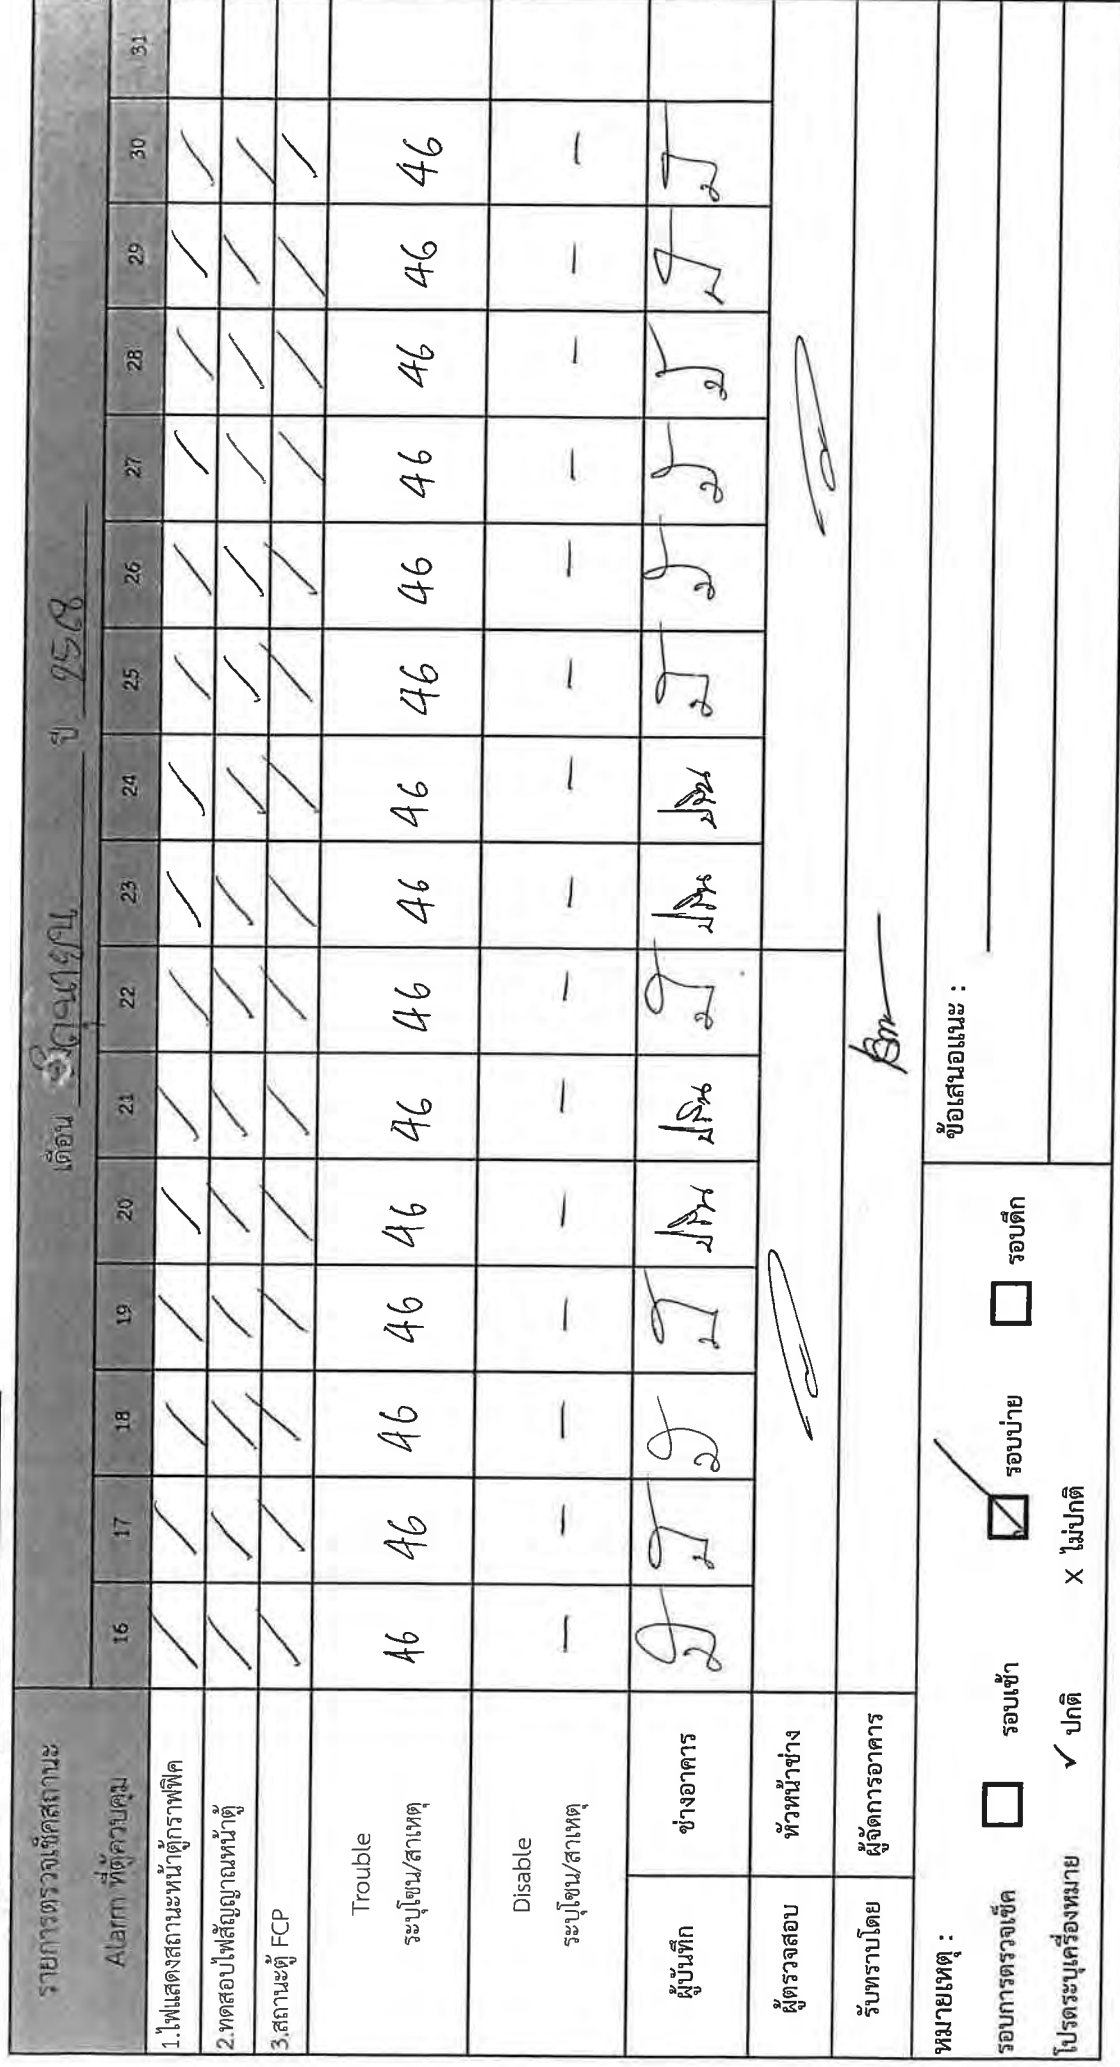 รายการตรวจเช็คสถานะ
Alarm ที่ตู้ควบคุม
เดือน มิถุนายน ปี 2568
16 17 18 19 20 21 22 23 24 25 26 27 28 29 30 31
1.ไฟแสดงสถานะหน้าตู้กราฟฟิค / / / / / / / / / / / / / / /
2.ทดสอบไฟสัญญาณหน้าตู้ / / / / / / / / / / / / / / /
3.สถานะตู้ FCP / / / / / / / / / / / / / / /
Trouble
ระบุโซน/สาเหตุ
46 46 46 46 46 46 46 46 46 46 46 46 46 46 46
Disable
ระบุโซน/สาเหตุ
- - - - - - - - - - - - - - -
ผู้บันทึก ช่างอาคาร
ผู้ตรวจสอบ หัวหน้าช่าง
รับทราบโดย ผู้จัดการอาคาร
หมายเหตุ :
ข้อเสนอแนะ :
รอบการตรวจเช็ค ☐ รอบเช้า ☑ รอบบ่าย ☐ รอบดึก
โปรดระบุเครื่องหมาย ✓ ปกติ x ไม่ปกติ